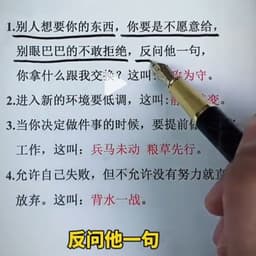 1.别人想要你的东西，你要是不愿意给，
别眼巴巴的不敢拒绝，反问他一句，
你拿什么跟我交换？这叫：为守。
2.进入新的环境要低调，这叫:变。
3.当你决定做件事的时候，要提前
工作，这叫：兵马未动 粮草先行。
4.允许自己失败，但不允许没有努力就
放弃。这叫：背水一战。
反问他一句